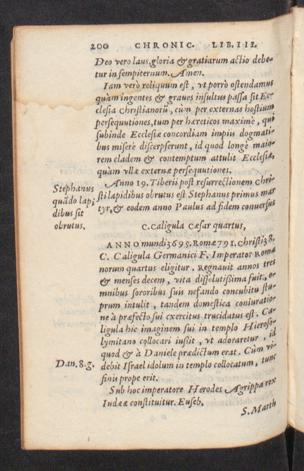 200 CHRONIC. LIB. III.
Deo vero laus, gloria & gratiarum actio debe-
tur in sempiternum. Amen.
Iam verò reliquum est, vt porrò ostendamus
quàm ingentes & graues insultus passa sit Ec-
clesia Christianorũ, cùm per externas hostium
persequutiones, tum per hæreticos maximè, qui
subinde Ecclesiæ concordiam impiis dogmati-
bus miserè discerpserunt, id quod longè maio-
rem cladem & contemptum attulit Ecclesiæ,
quàm vllæ externæ persequutiones.
Anno 19. Tiberii post resurrectionem Chri-
sti lapidibus obrutus est Stephanus primus mar-
tyr, & eodem anno Paulus ad fidem conuersus
Stephanus
quãdo lapi-
dibus sit
obrutus.
C. Caligula Cæsar quartus,
ANNO mundi 3695. Romæ 791. Christi 38,
C. Caligula Germanici F. Imperator Roma
norum quartus eligitur. Regnauit annos tres
& menses decem, vita dissolutissima fuit, o-
mnibus sororibus suis nefando concubitu stu-
prum intulit, tandem domestica coniuratio-
ne à præfecto sui exercitus trucidatus est. Ca-
ligula hic imaginem sui in templo Hieroso-
lymitano collocari iussit, vt adoraretur, id
quod & à Daniele prædictum erat. Cùm vi-
debit Israel idolum in templo collocatum, tunc
finis prope erit.
Dan. 8. g.
Sub hoc imperatore Herodes Agrippa rex
Iudææ constituitur. Euseb.
S. Matth